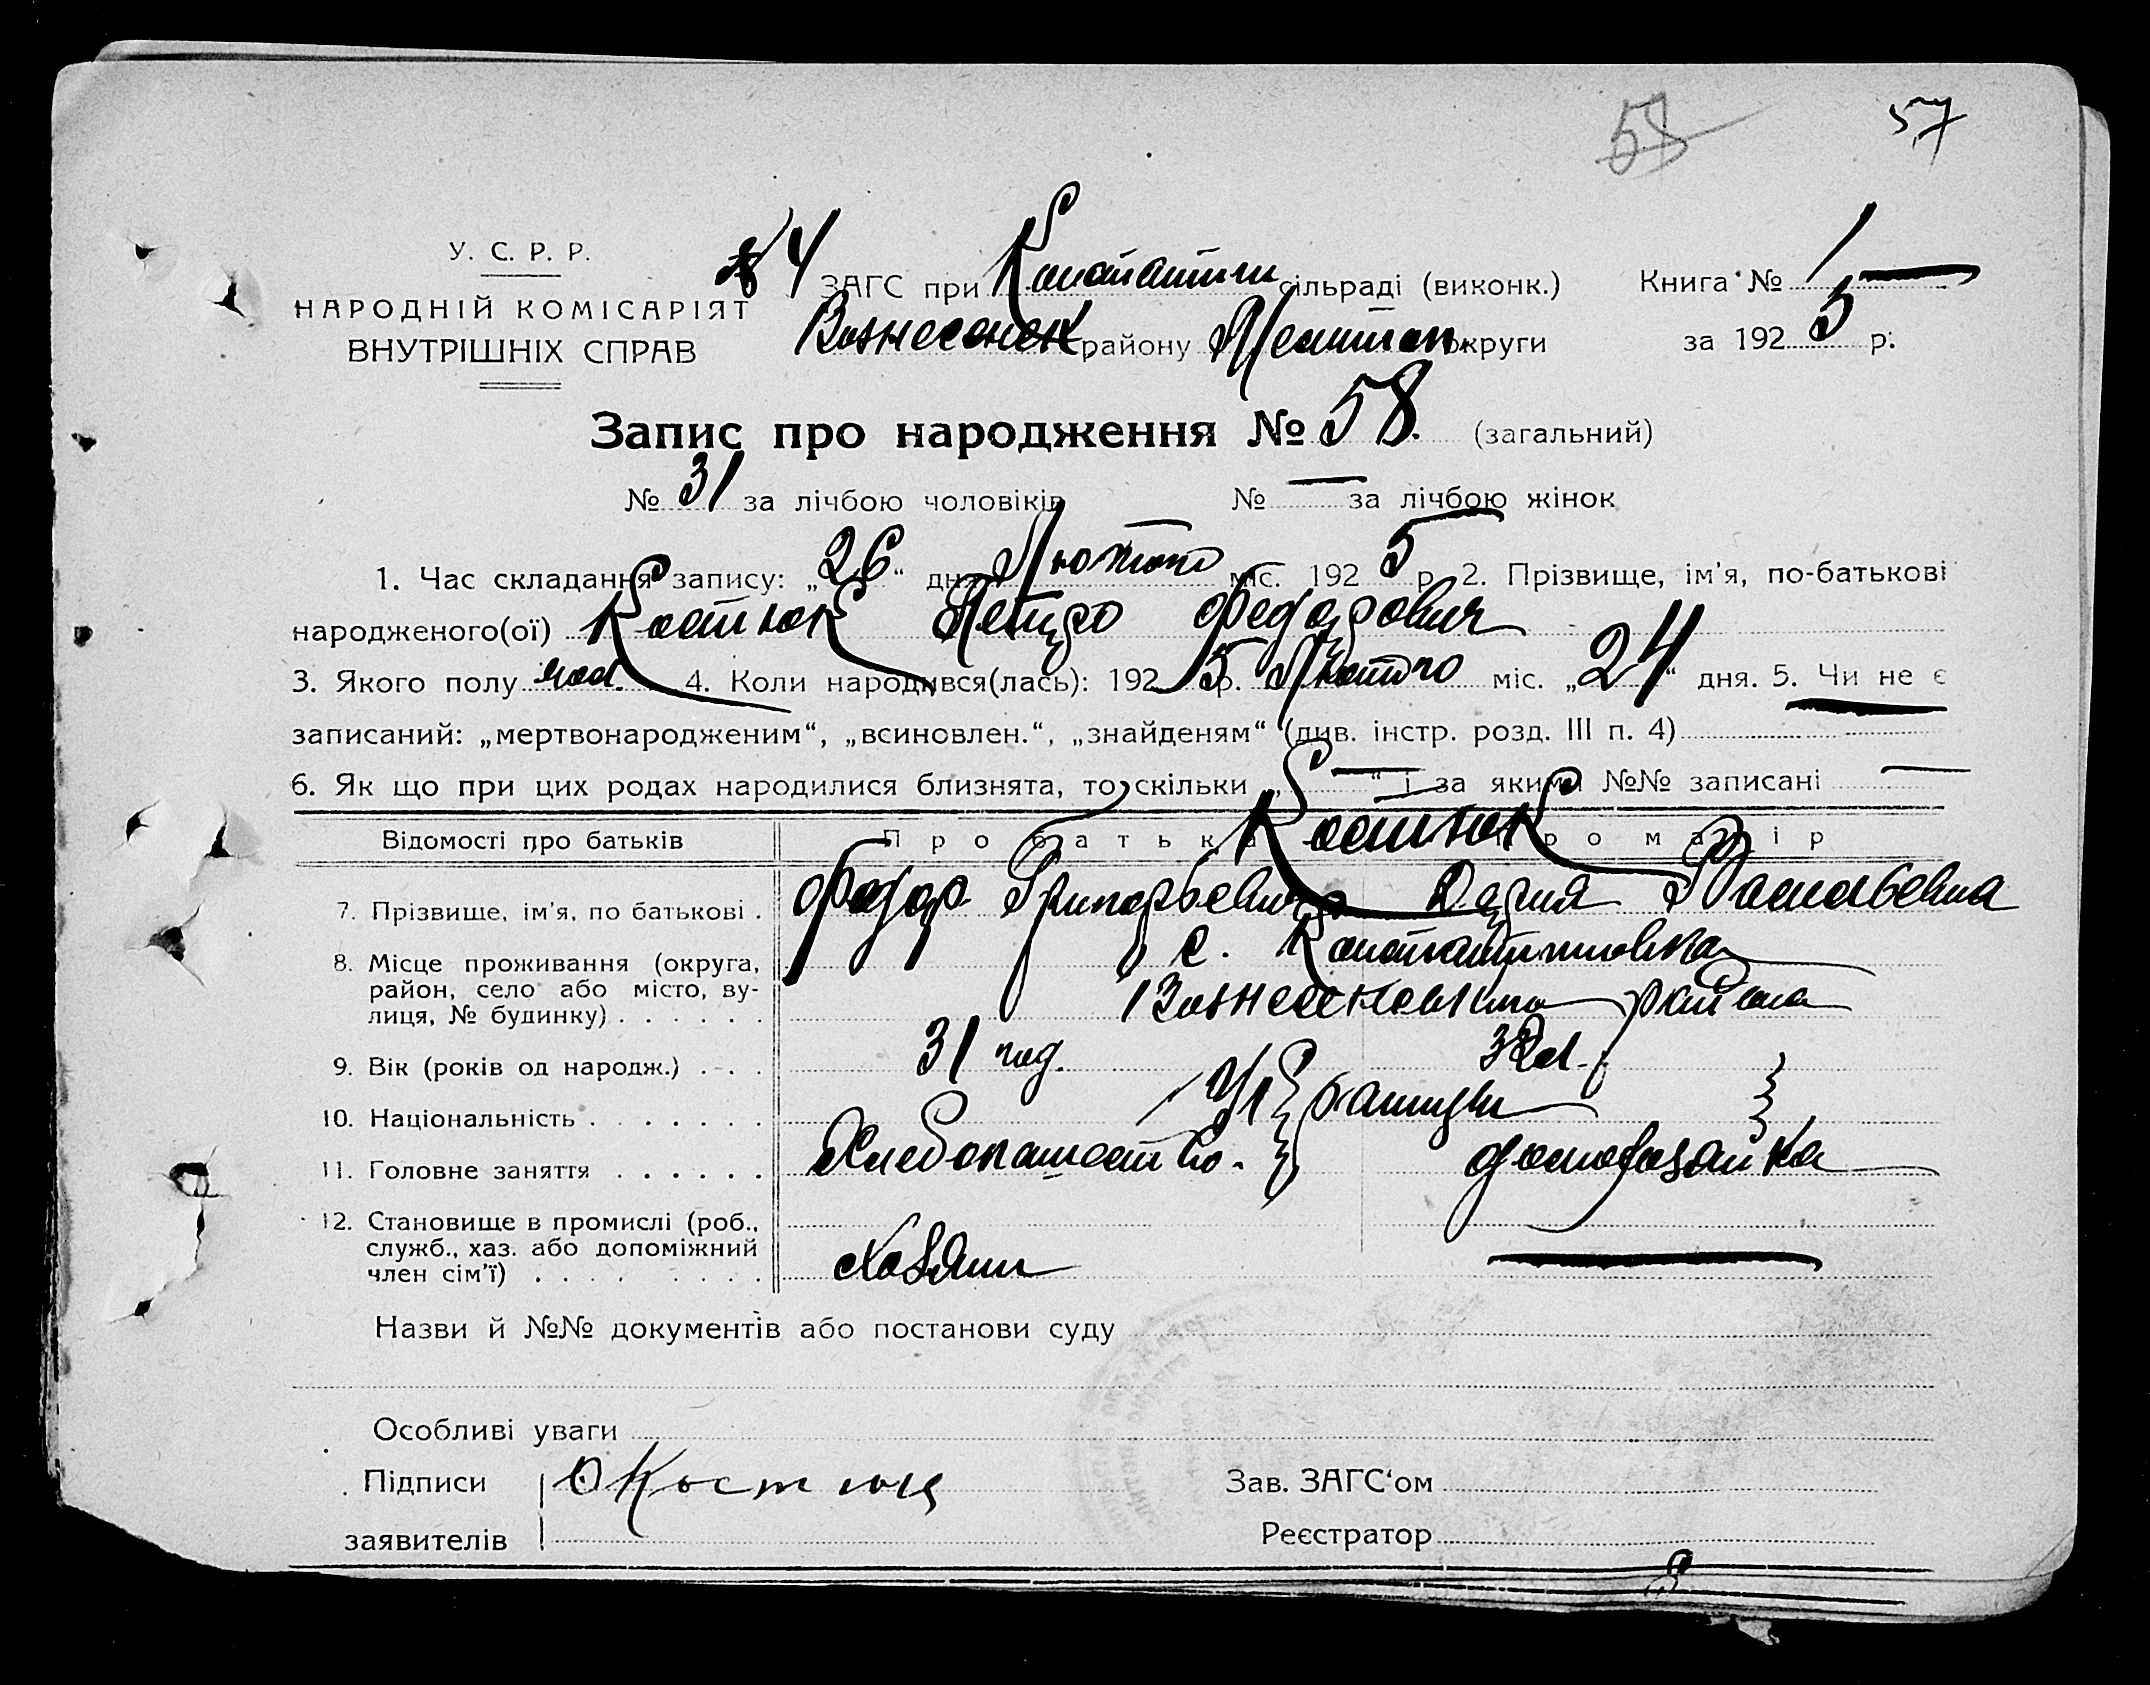 58 57
У. С. Р. Р.
НАРОДНІЙ КОМІСАРІЯТ
ВНУТРІШНІХ СПРАВ
№ 4 ЗАГС при Константин сільраді (виконк.)
Вознесенск району Мелитоп. округи
Книга № 1
за 1925 р.
Запис про народження № 58. (загальний)
№ 31 за лічбою чоловіків № — за лічбою жінок
1. Час складання запису: „26“ дня Лютого міс. 1925 р. 2. Прізвище, ім'я, по-батькові
народженого(ої) Костюк Петро Федорович
3. Якого полу чол. 4. Коли народився(лась): 1925 р. Лютого міс. „24“ дня. 5. Чи не є
записаний: „мертвонародженим“, „всиновлен.“, „знайденям“ (див. інстр. розд. III п. 4)
6. Як що при цих родах народилися близнята, то скільки „—“ і за якими №№ записані —
Відомості про батьків Про батька Про матір
Костюк
7. Прізвище, ім'я, по батькові . Федор Григорьевич Дария Васильевна
8. Місце проживання (округа, район, село або місто, ву-лиця, № будинку) . . . . . . с. Константиновка
Вознесеновского района
9. Вік (років од народж.) . . . 31 год. 32
10. Національність . . . . . . . Украинцы
11. Головне заняття . . . . . . Хлебопашество. домохозайка
12. Становище в промислі (роб., служб., хаз. або допоміжний член сім'ї) . . . . . . . . Хазяин —
Назви й №№ документів або постанови суду
Особливі уваги
Підписи
заявителів
Костюк
Зав. ЗАГС'ом
Реєстратор